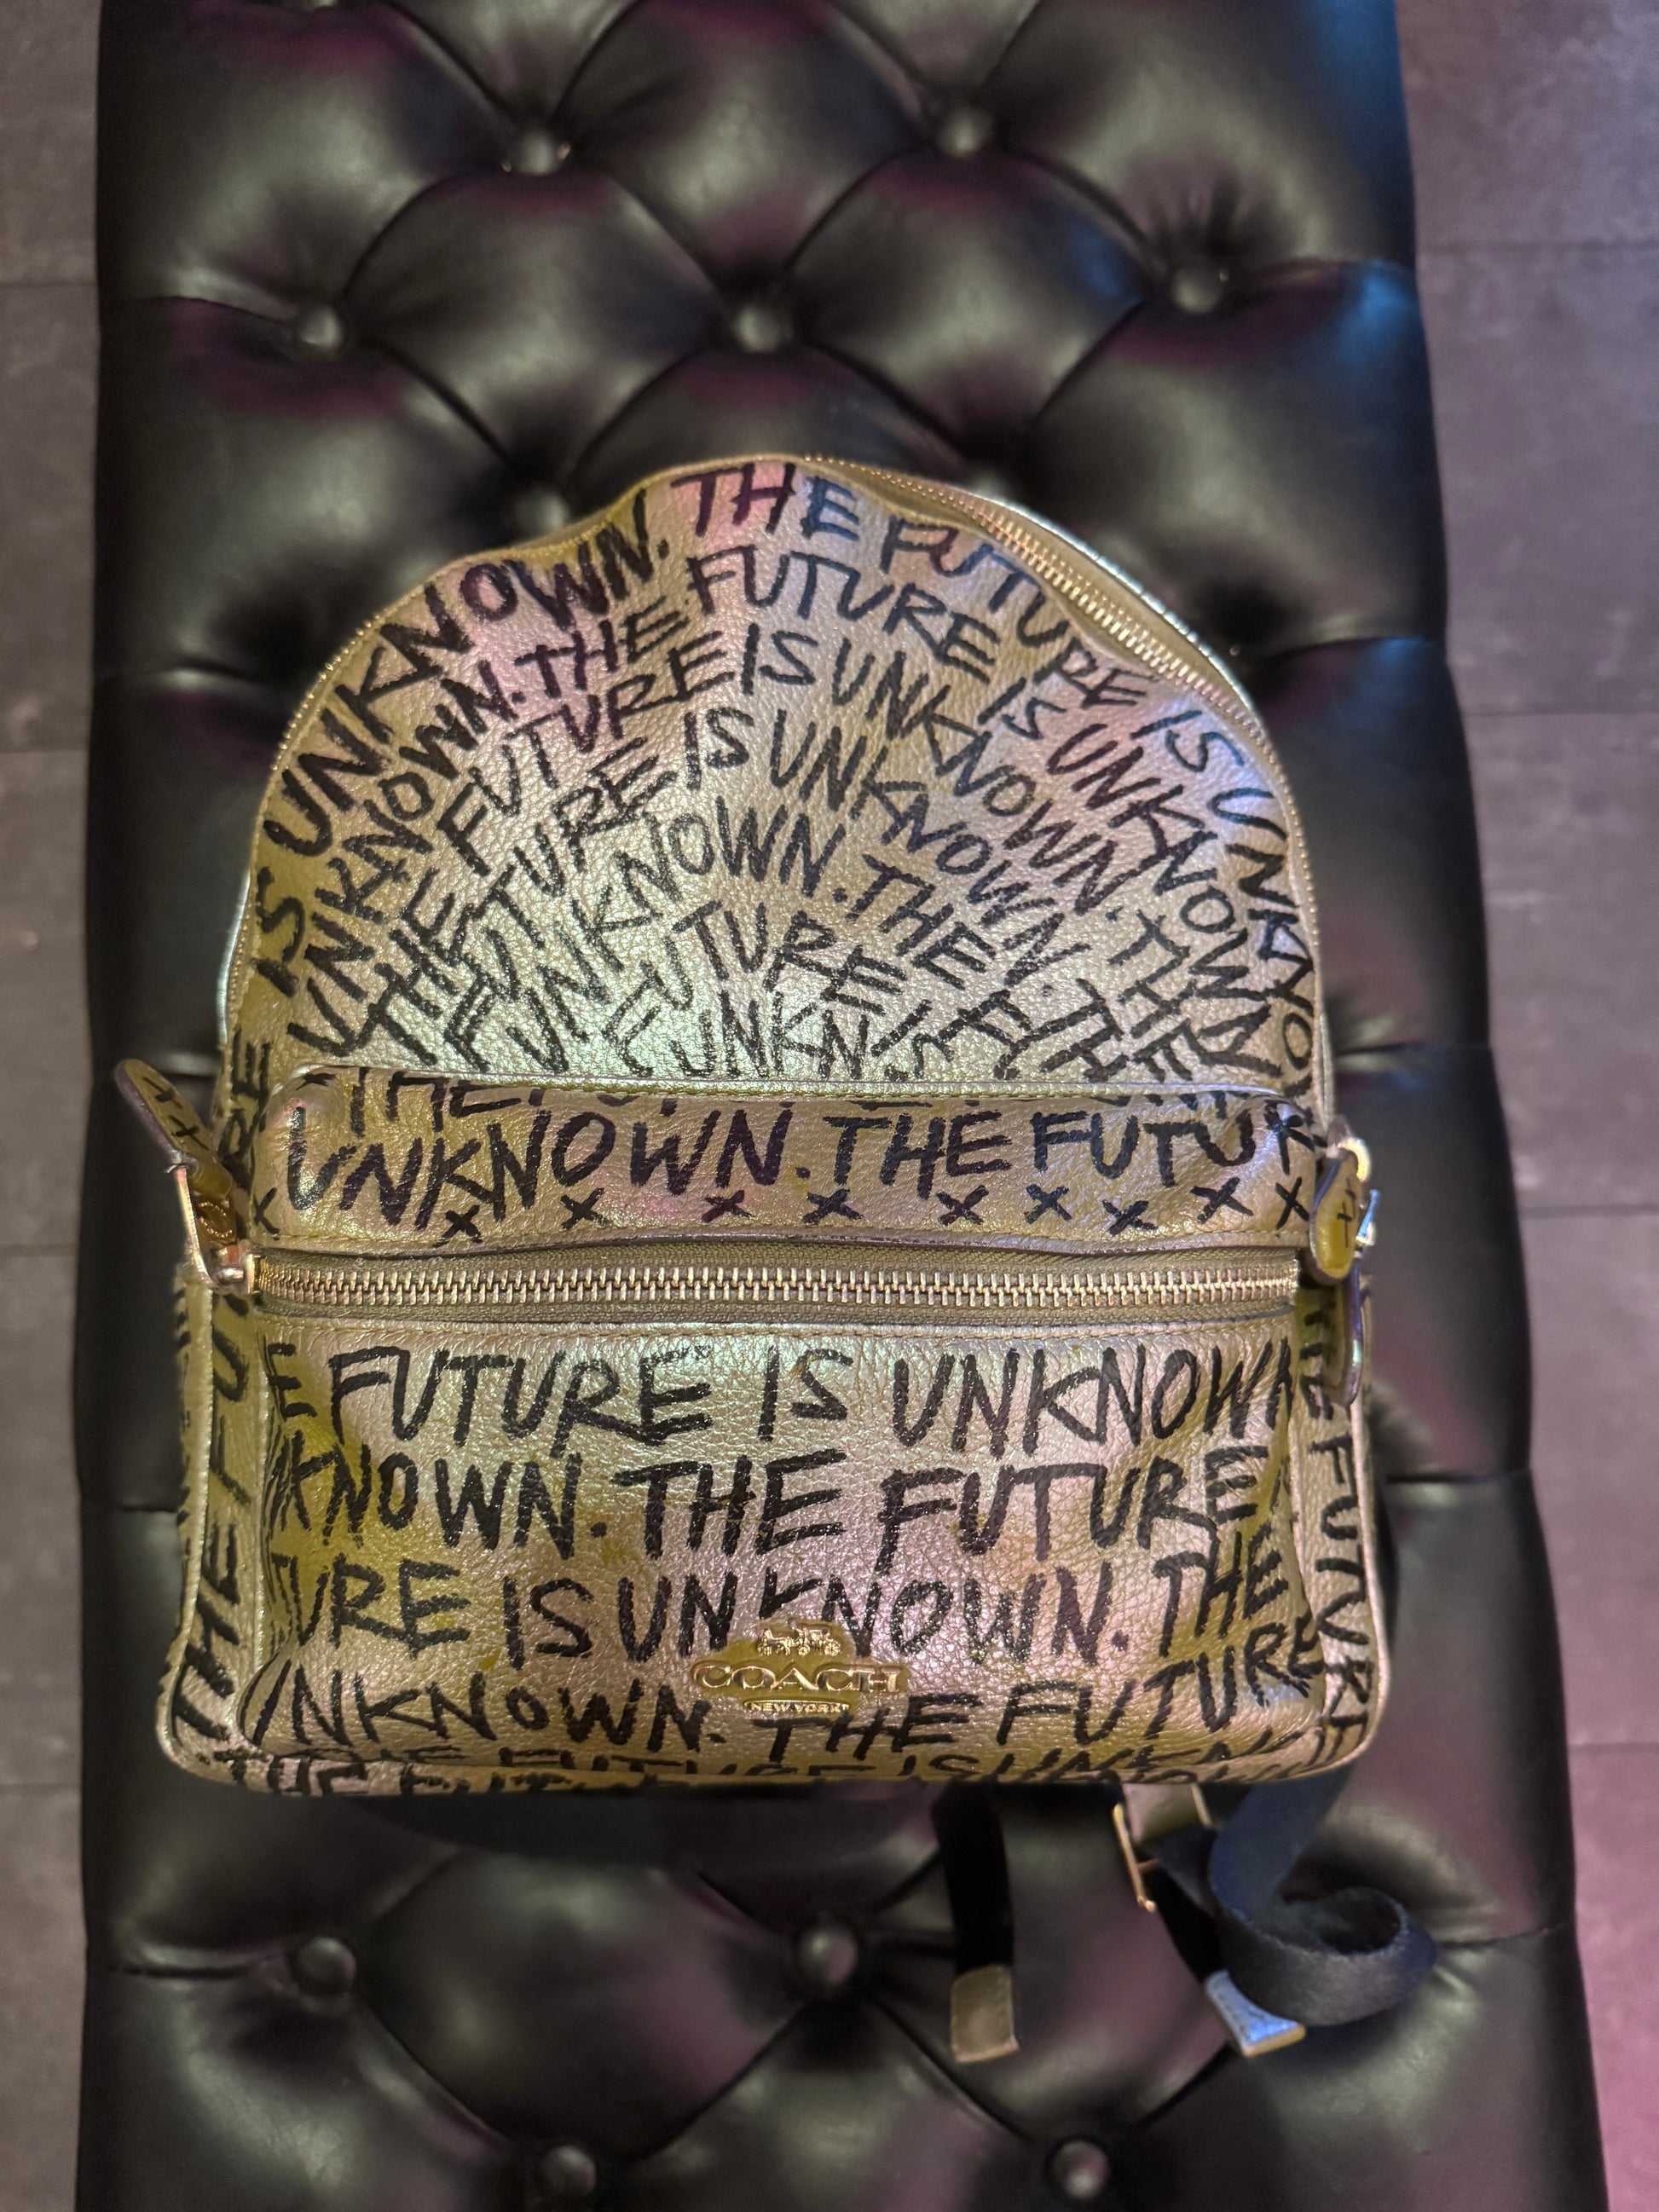 IS UNKNOWN. THE FUTURE IS UNKNOWN
UNKNOWN. THE FUTURE IS UNKNOWN
THE FUTURE IS UNKNOWN. THE
FUTURE IS UNKNOWN. THE
UNKNOWN. THE
FUTURE IS
UNKN
UNKNOWN. THE FUTU
x x x x x x x x x
E FUTURE IS UNKNOWN
KNOWN. THE FUTURE
URE IS UNKNOWN. THE
COACH
NEW YORK
UNKNOWN. THE FUTURE
THE FUTURE IS UNKN
THE FUTURE
THE FUTURE